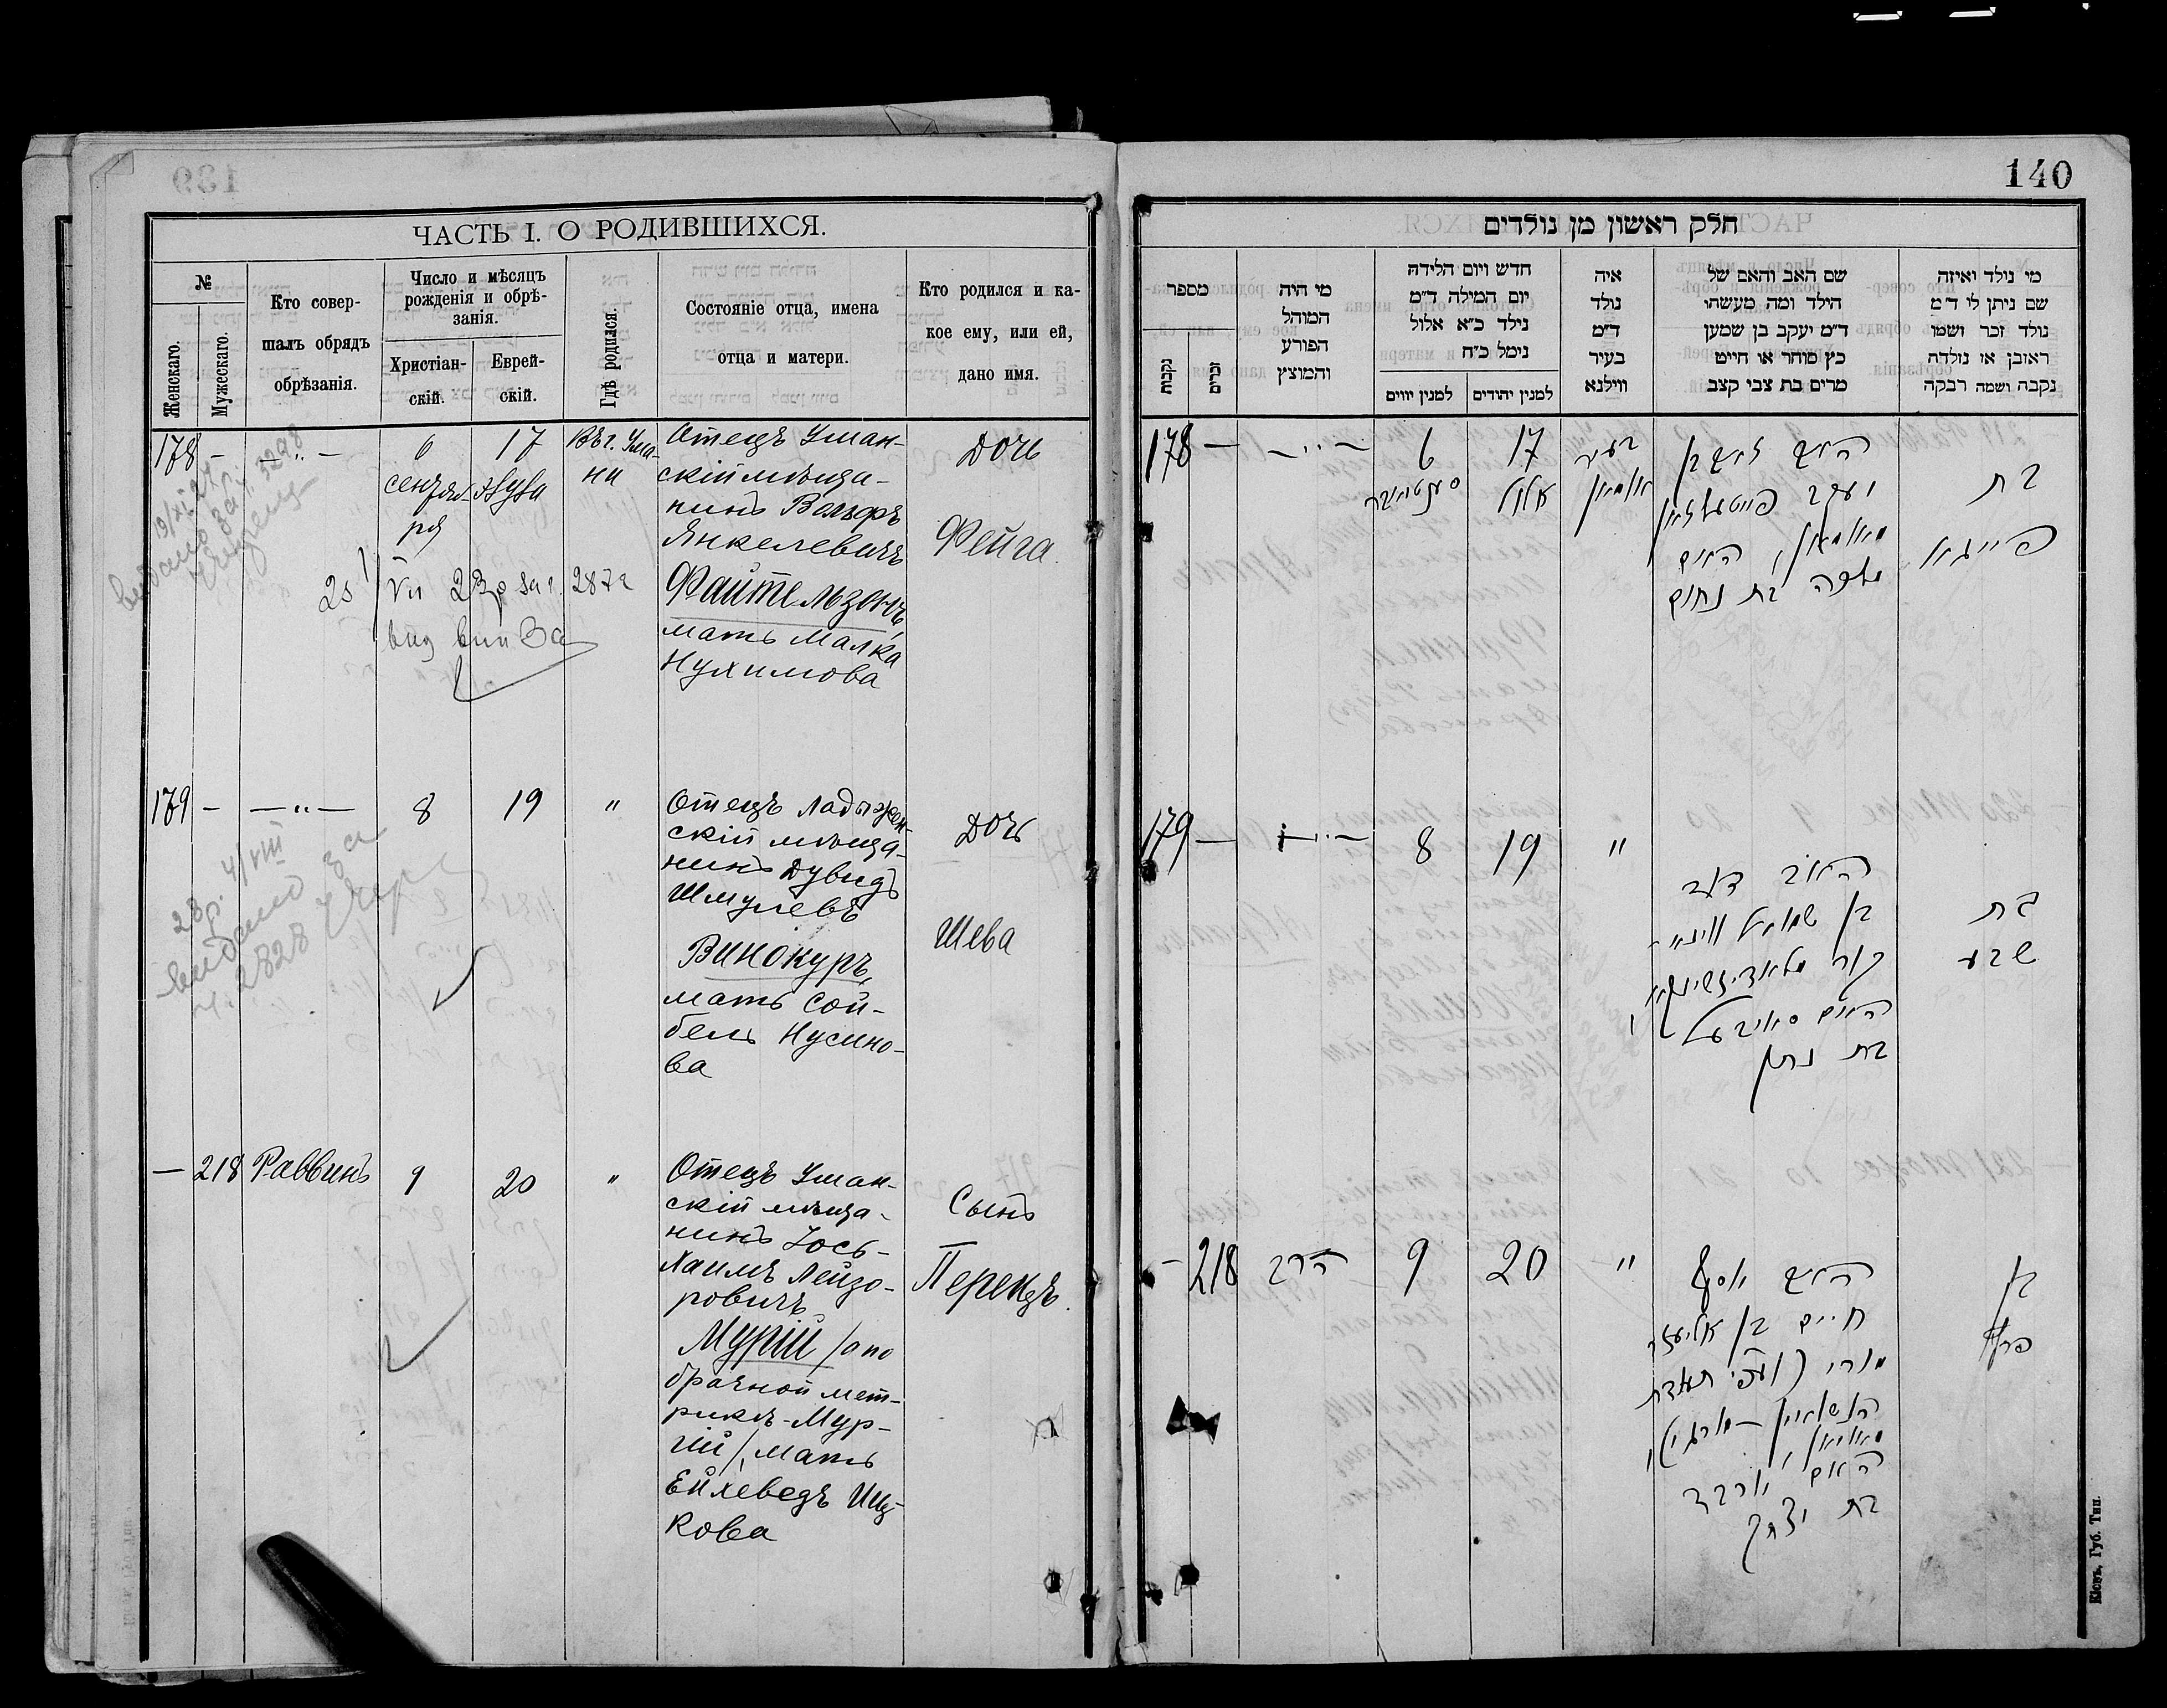 140
ЧАСТЬ I. О РОДИВШИХСЯ.
№
Женскаго.
Мужескаго.
Кто совер-
шалъ обрядъ
обрѣзанія.
Число и мѣсяцъ
рожденія и обрѣ-
занія.
Христіан-
скій.
Еврей-
скій.
Гдѣ родился.
Состояніе отца, имена
отца и матери.
Кто родился и ка-
кое ему, или ей,
дано имя.
178 - - " - 6 17 Въ г. Ума-
ни
сентяб-
ря
Отецъ Уман-
скій мѣща-
нинъ Вольфъ
Янкелевичъ
Файтельзонъ,
мать Малка
Нухимова
Дочь
Фейга.
179 - - " - 8 19 "
Отецъ Ладыжен-
скій мѣща-
нинъ Дувидъ
Шмулевъ
Винокуръ,
мать Сой-
бель Нусино-
ва
Дочь
Шева
- 218 Раввинъ 9 20 "
Отецъ Уман-
скій мѣща-
нинъ Іось-
Хаимъ Лейзо-
ровичъ
Мурій /а по
брачной мет-
рикѣ - Мур-
гій/, мать
Ейхеведъ Иц-
кова
Сынъ
Перецъ.
חלק ראשון מן נולדים
מספר
נקבות
זכרים
מי היה
המוהל
הפורע
והמוצץ
חדש ויום הלידה
יום המילה ד"מ
נילד כ"א אלול
נימל כ"ח
למנין יווים
למנין יהודים
איה
נולד
ד"מ
בעיר
ווילנא
שם האב והאם של
הילד ומה מעשהו
ד"מ יעקב בן שמען
כץ סוחר או חייט
מרים בת צבי קצב
מי נולד ואיזה
שם ניתן לו ד"מ
נולד זכר ושמו
ראובן או נולדה
נקבה ושמה רבקה
178 - - " - 6 17
אלול
בעיר
אומאן
האב זאב בן
האם
מלכה בת נחום
בת
פייגא
179 - - " - 8 19 "
האב דוד
בן שמואל ווינא-
קור
האם סאיבעל
בת נתן
בת
שבע
- 218 הרב 9 20 "
האב יוסף
חיים בן אליעזר
מורי
האם יוכבד
בת יצחק
בן
פרץ
Кіевъ, Губ. Тип.